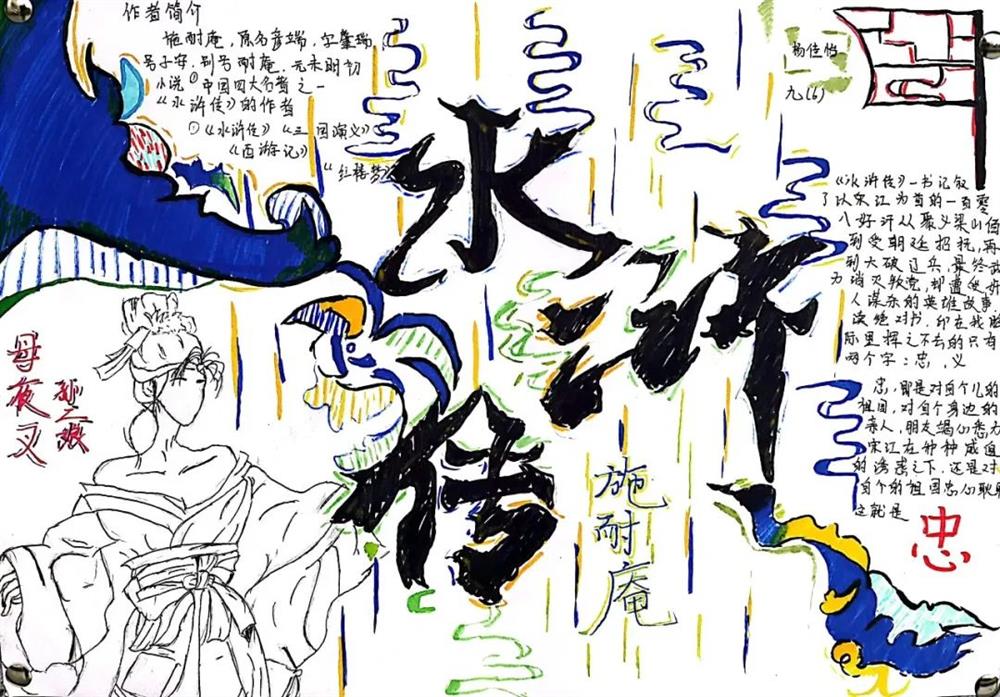 作者简介
施耐庵,原名彦端,字肇瑞,
号子安,别号耐庵,元末明初
小说①中国四大名著之一
《水浒传》的作者
①《水浒传》《三国演义》
《西游记》
《红楼梦》
杨佳怡
九(6)
水浒传
施耐庵
母夜叉
孙二娘
《水浒传》一书记叙
了以宋江为首的一百零
八好汉从聚义梁山泊
到受朝廷招抚,再
到大破辽兵,最终
力消灭叛党,却遭受奸
人谋杀的英雄故事
读绝对书,印在我
际里挥之不去的只有
两个字:忠,义
忠,即是对自个儿的
祖国,对自个身边的
亲人,朋友竭心悉力
宋江在种种威迫
的诱惑之下,还是对
自个的祖国忠心耿
这就是
忠